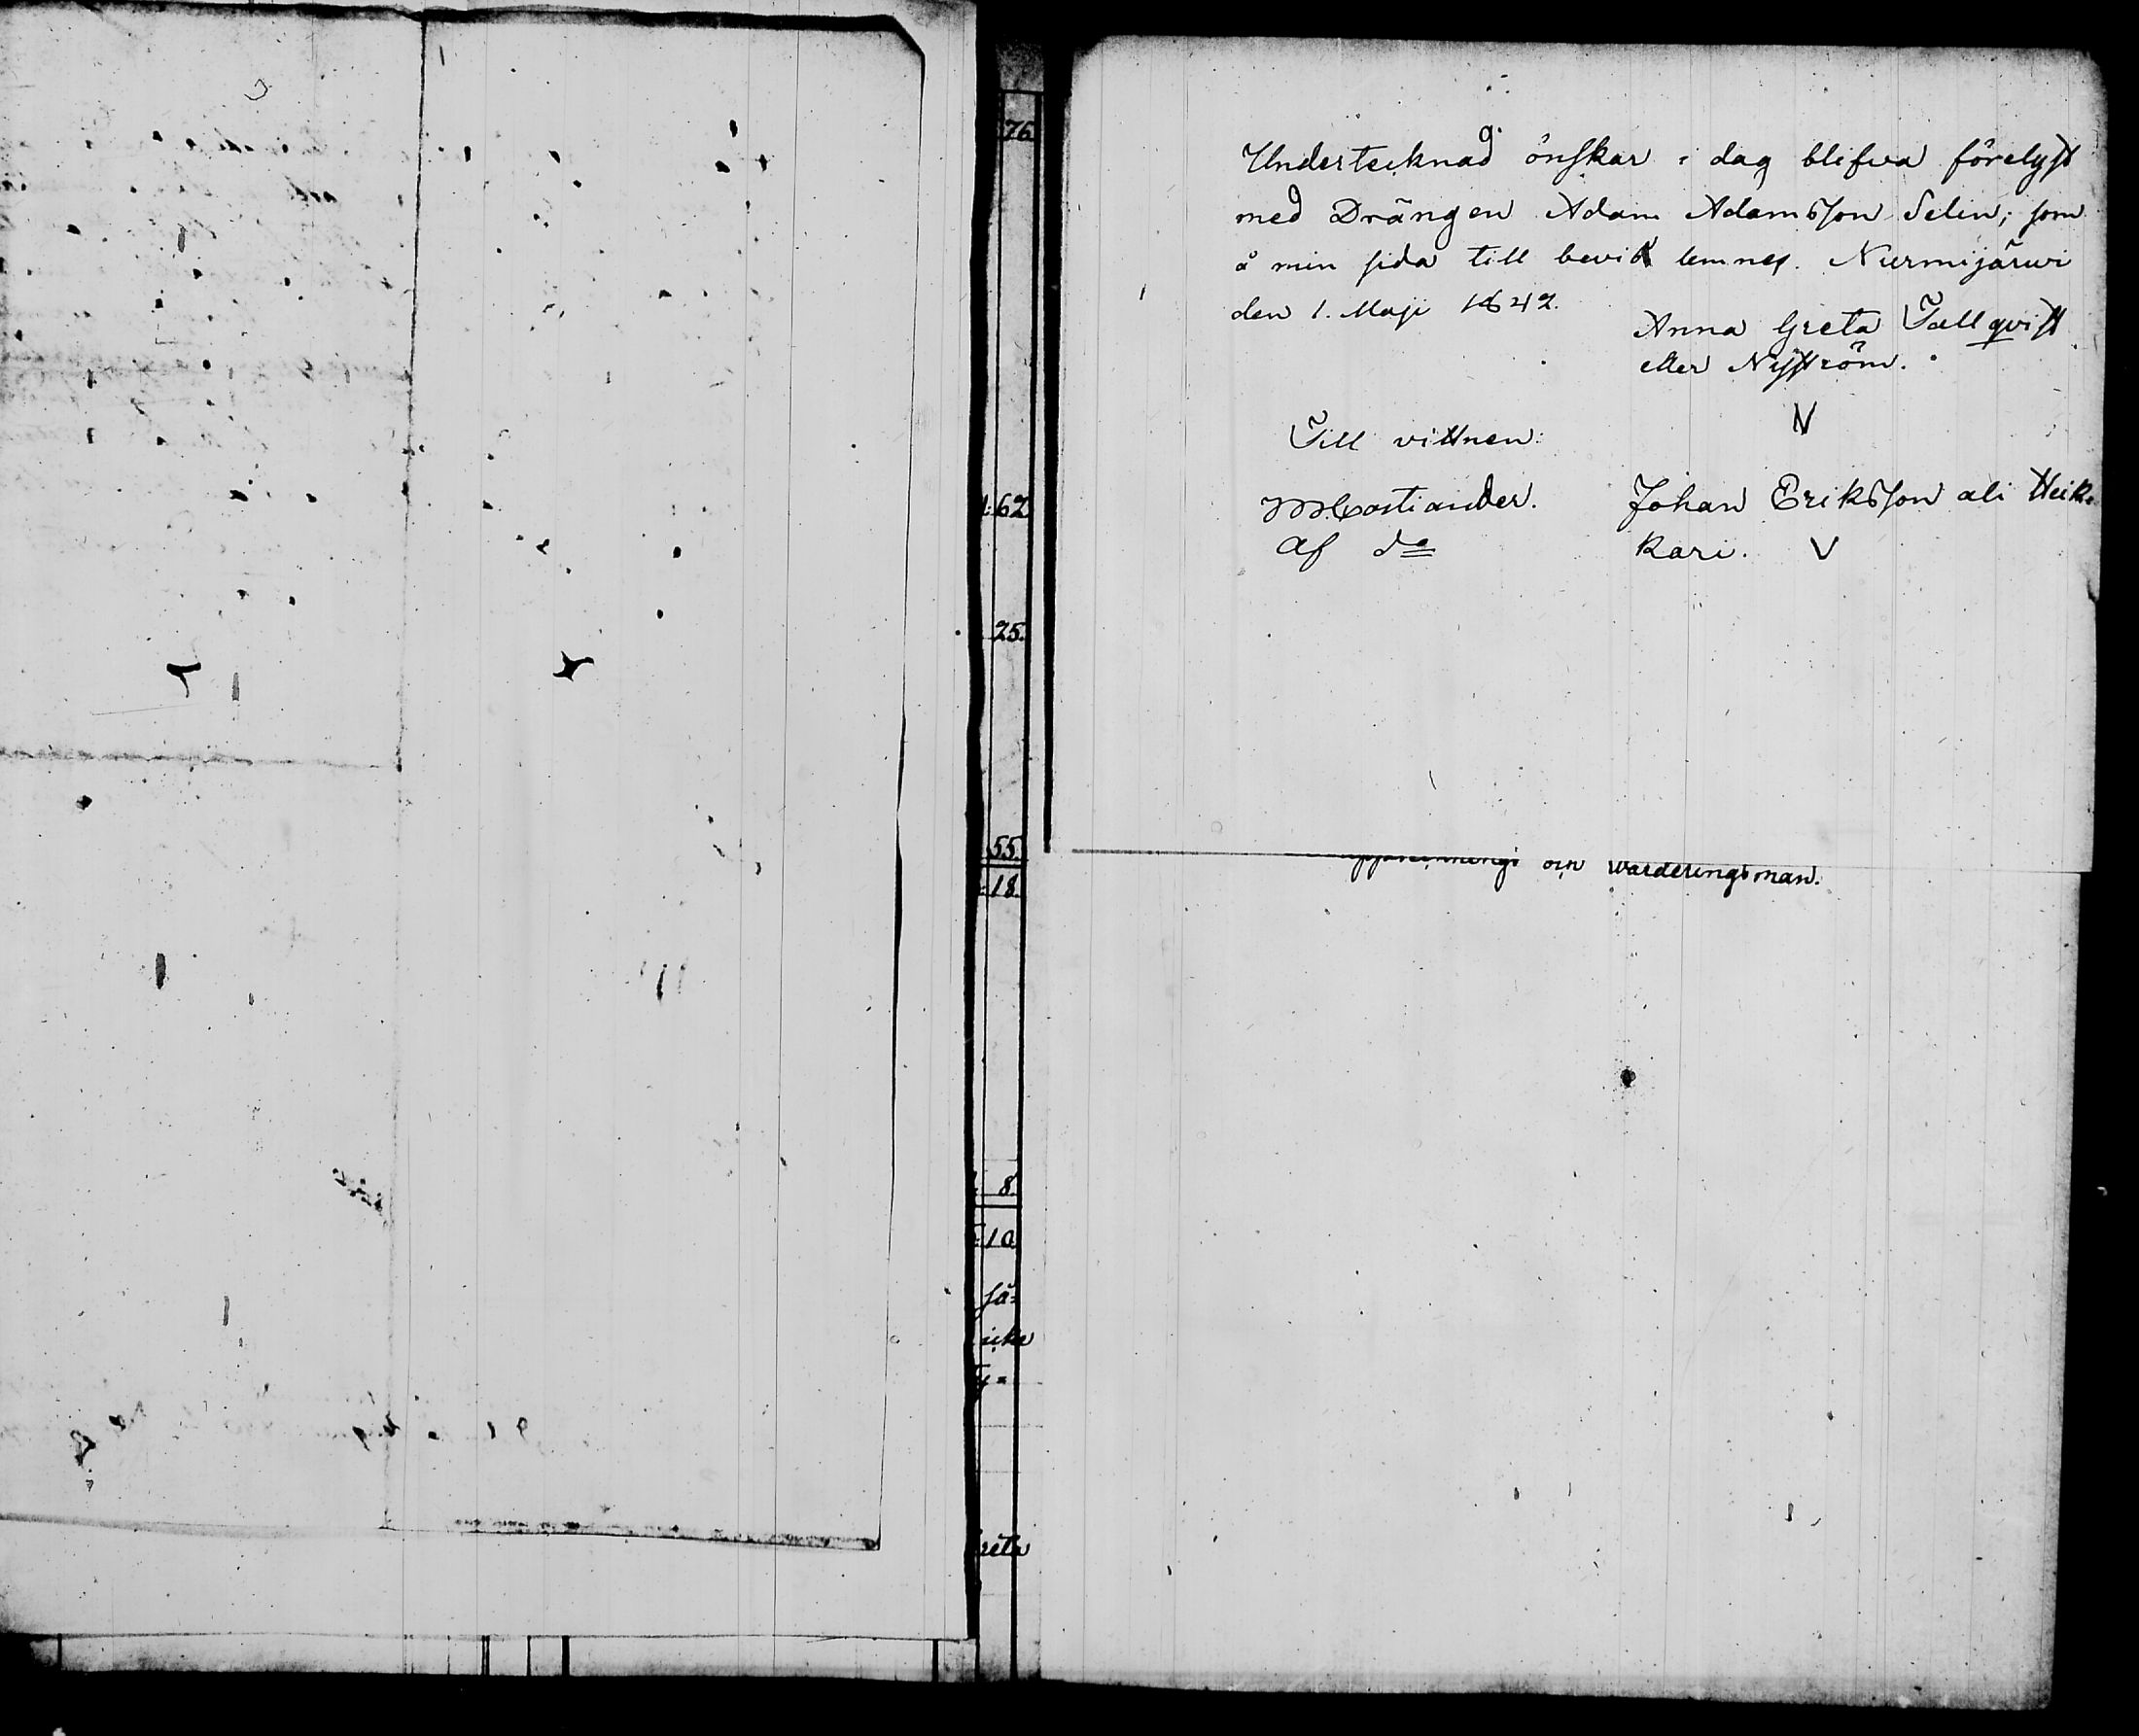 76
:62
25.
55.
:18.
8.
:10
så=
icke
reta
g.
Undertecknad önskar i dag blifva förelyst
med Drängen Adam Adamsson Selin; som
å min sida till bevis lemnes. Nurmijärvi
den 1. Maji 1842.
Anna Greta Tallqvist
eller Nyström.
N
Till vittnen:
Johan Eriksson ali Heik-
af do
kari. V
och värderingsman.